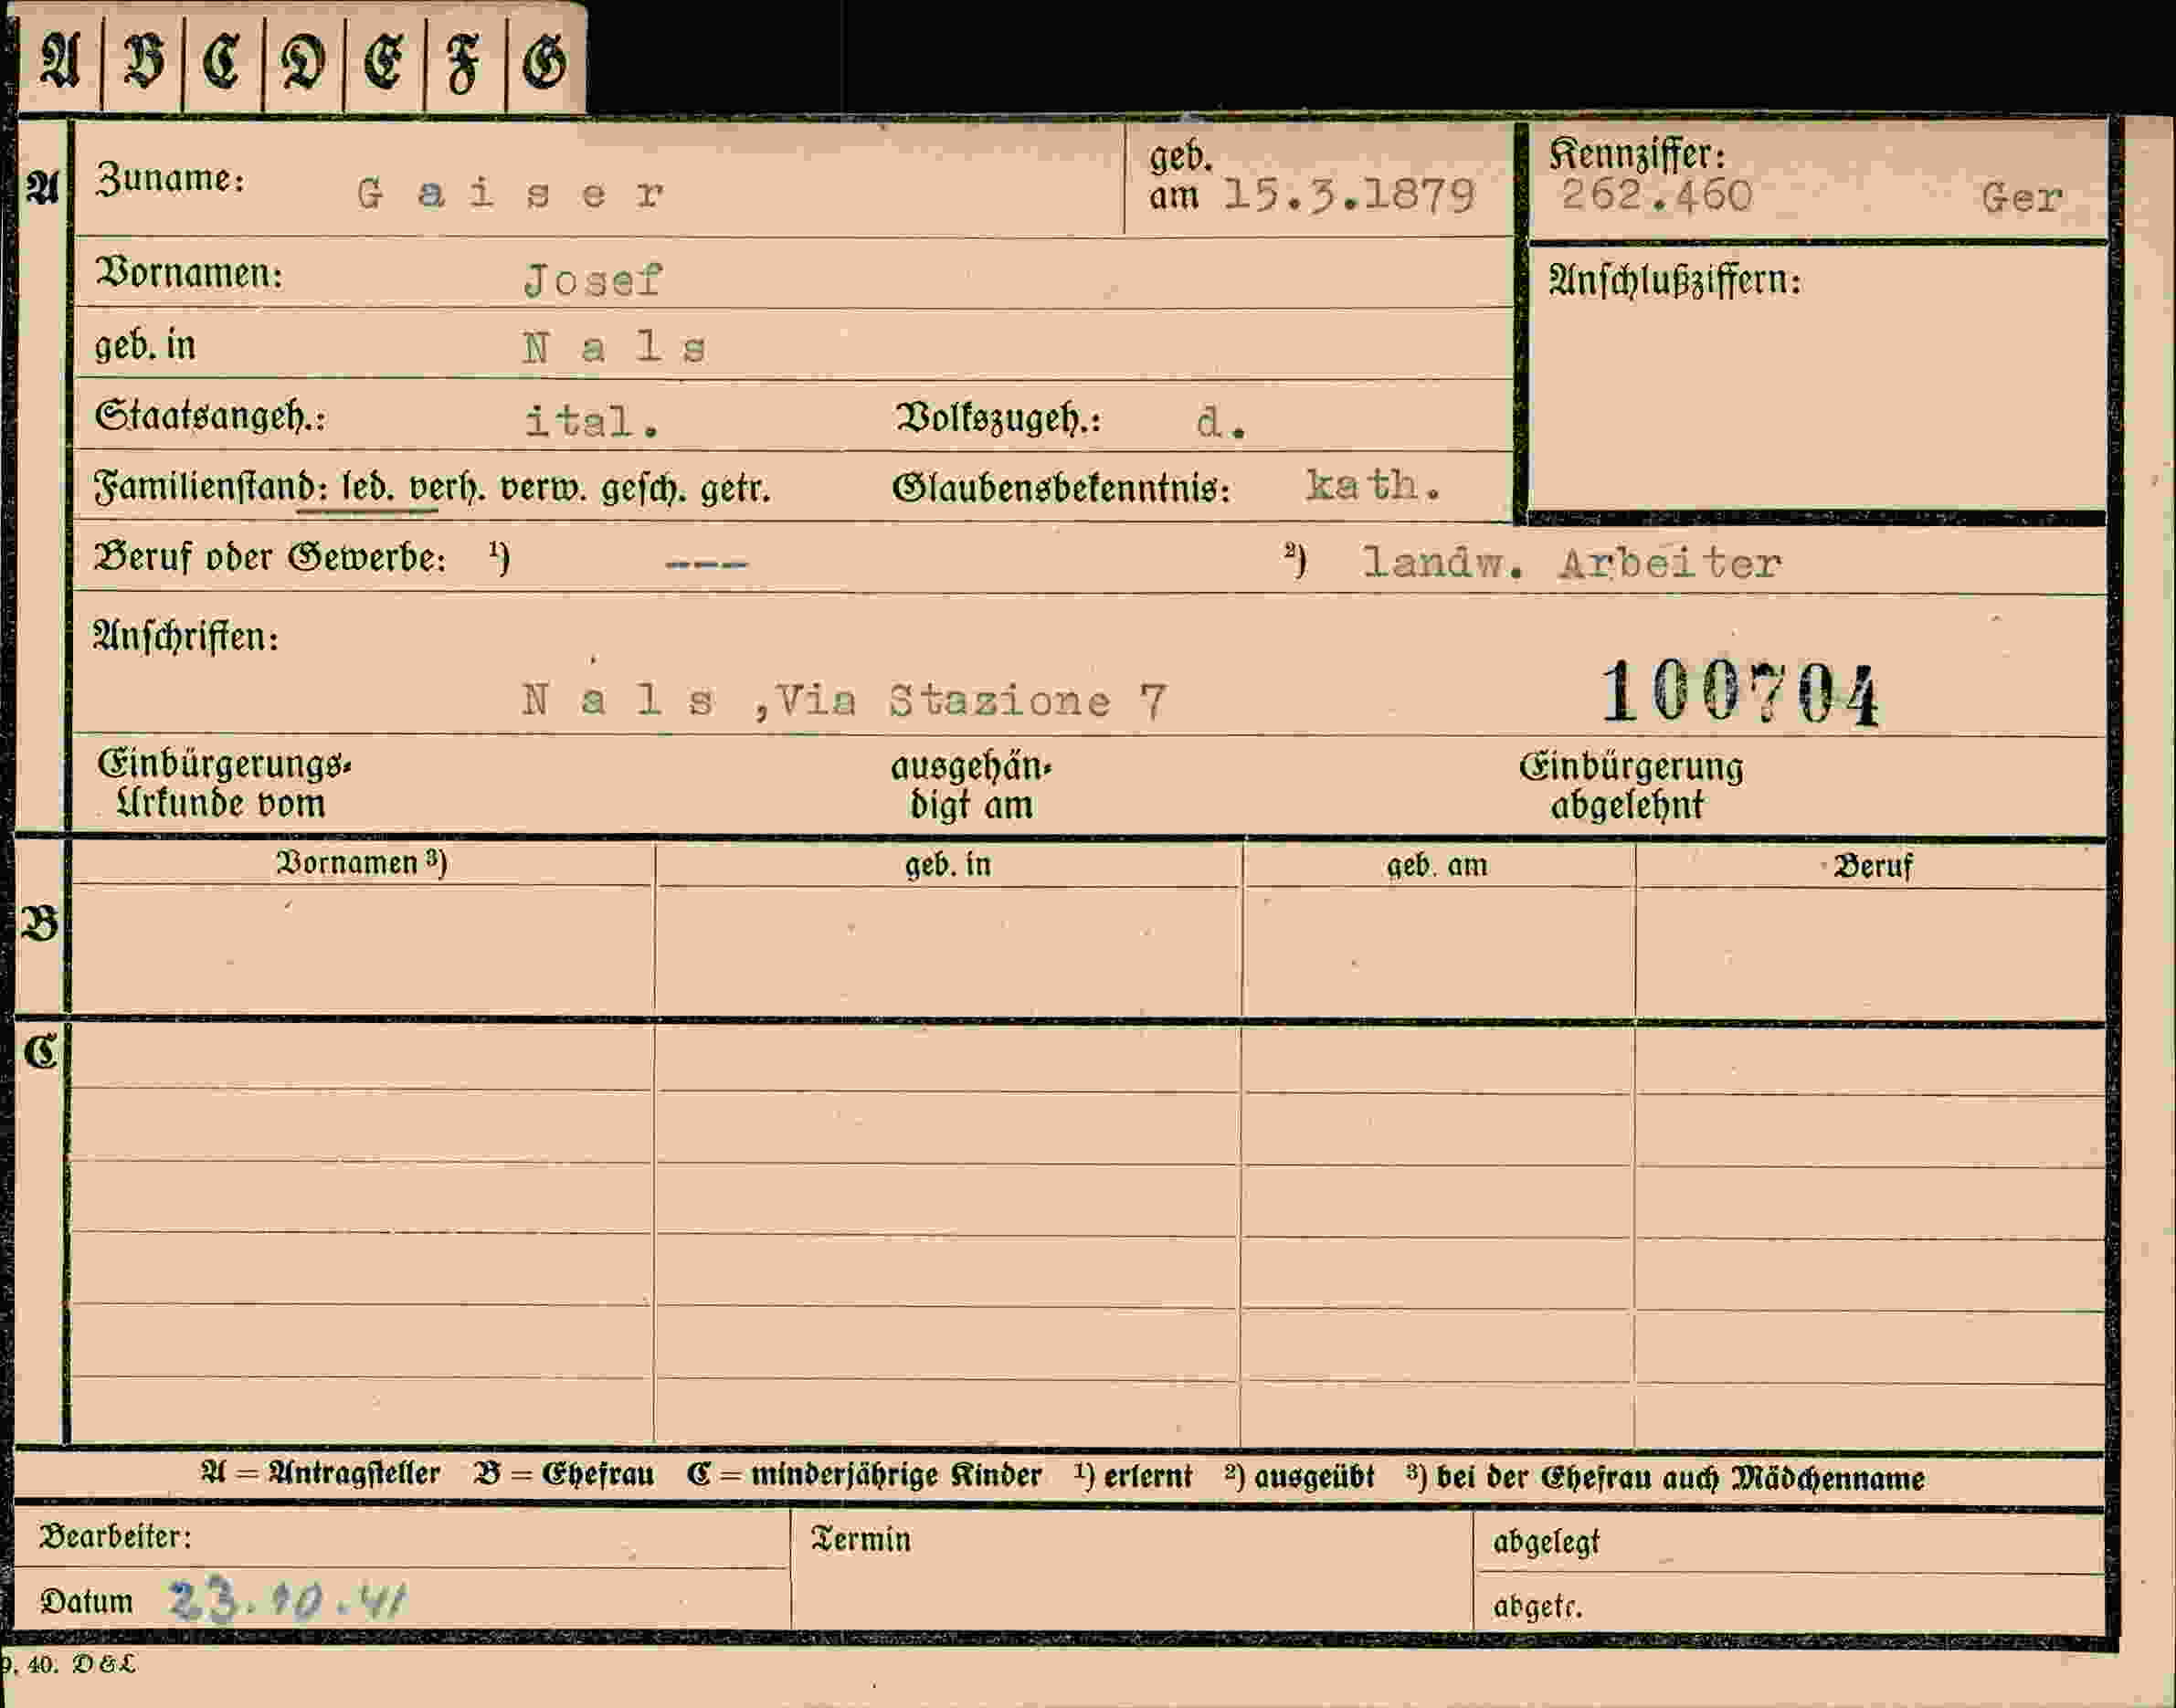 A B C D E F G
A Zuname: Gaiser geb. am 15.3.1879 Kennziffer: 262.460 Ger
Vornamen: Josef Anschlußziffern:
geb. in Nals
Staatsangeh.: ital. Volkszugeh.: d.
Familienstand: led. verh. verw. gesch. getr. Glaubensbekenntnis: kath.
Beruf oder Gewerbe: 1) --- 2) landw. Arbeiter
Anschriften:
Nals ,Via Stazione 7 100704
Einbürgerungs- Urkunde vom ausgehän- digt am Einbürgerung abgelehnt
Vornamen 3) geb. in geb. am Beruf
B
C
A = Antragsteller B = Ehefrau C = minderjährige Kinder 1) erlernt 2) ausgeübt 3) bei der Ehefrau auch Mädchenname
Bearbeiter: Termin abgelegt
Datum 23.10.41 abgetr.
9. 40. D & L